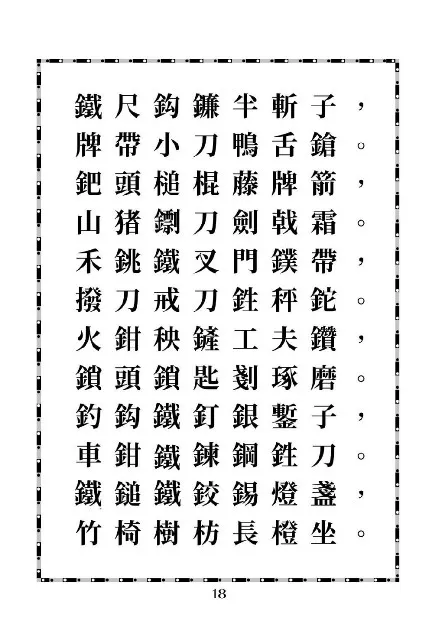 鐵尺鈎鐮半斬子，
牌帶小刀鴨舌鎗。
鈀頭槌棍藤牌箭，
山猪鐗刀劍戟霜。
禾銚鐵叉門鏷帶，
撥刀戒刀鉎秤鉈。
火鉗秧鏟工夫鑽，
鎖頭鎖匙剗琢磨。
釣鈎鐵釘銀鏨子，
車鉗鐵鍊鋼鉎刀。
鐵鎚鐵鉸錫燈盞，
竹椅樹枋長橙坐。
18